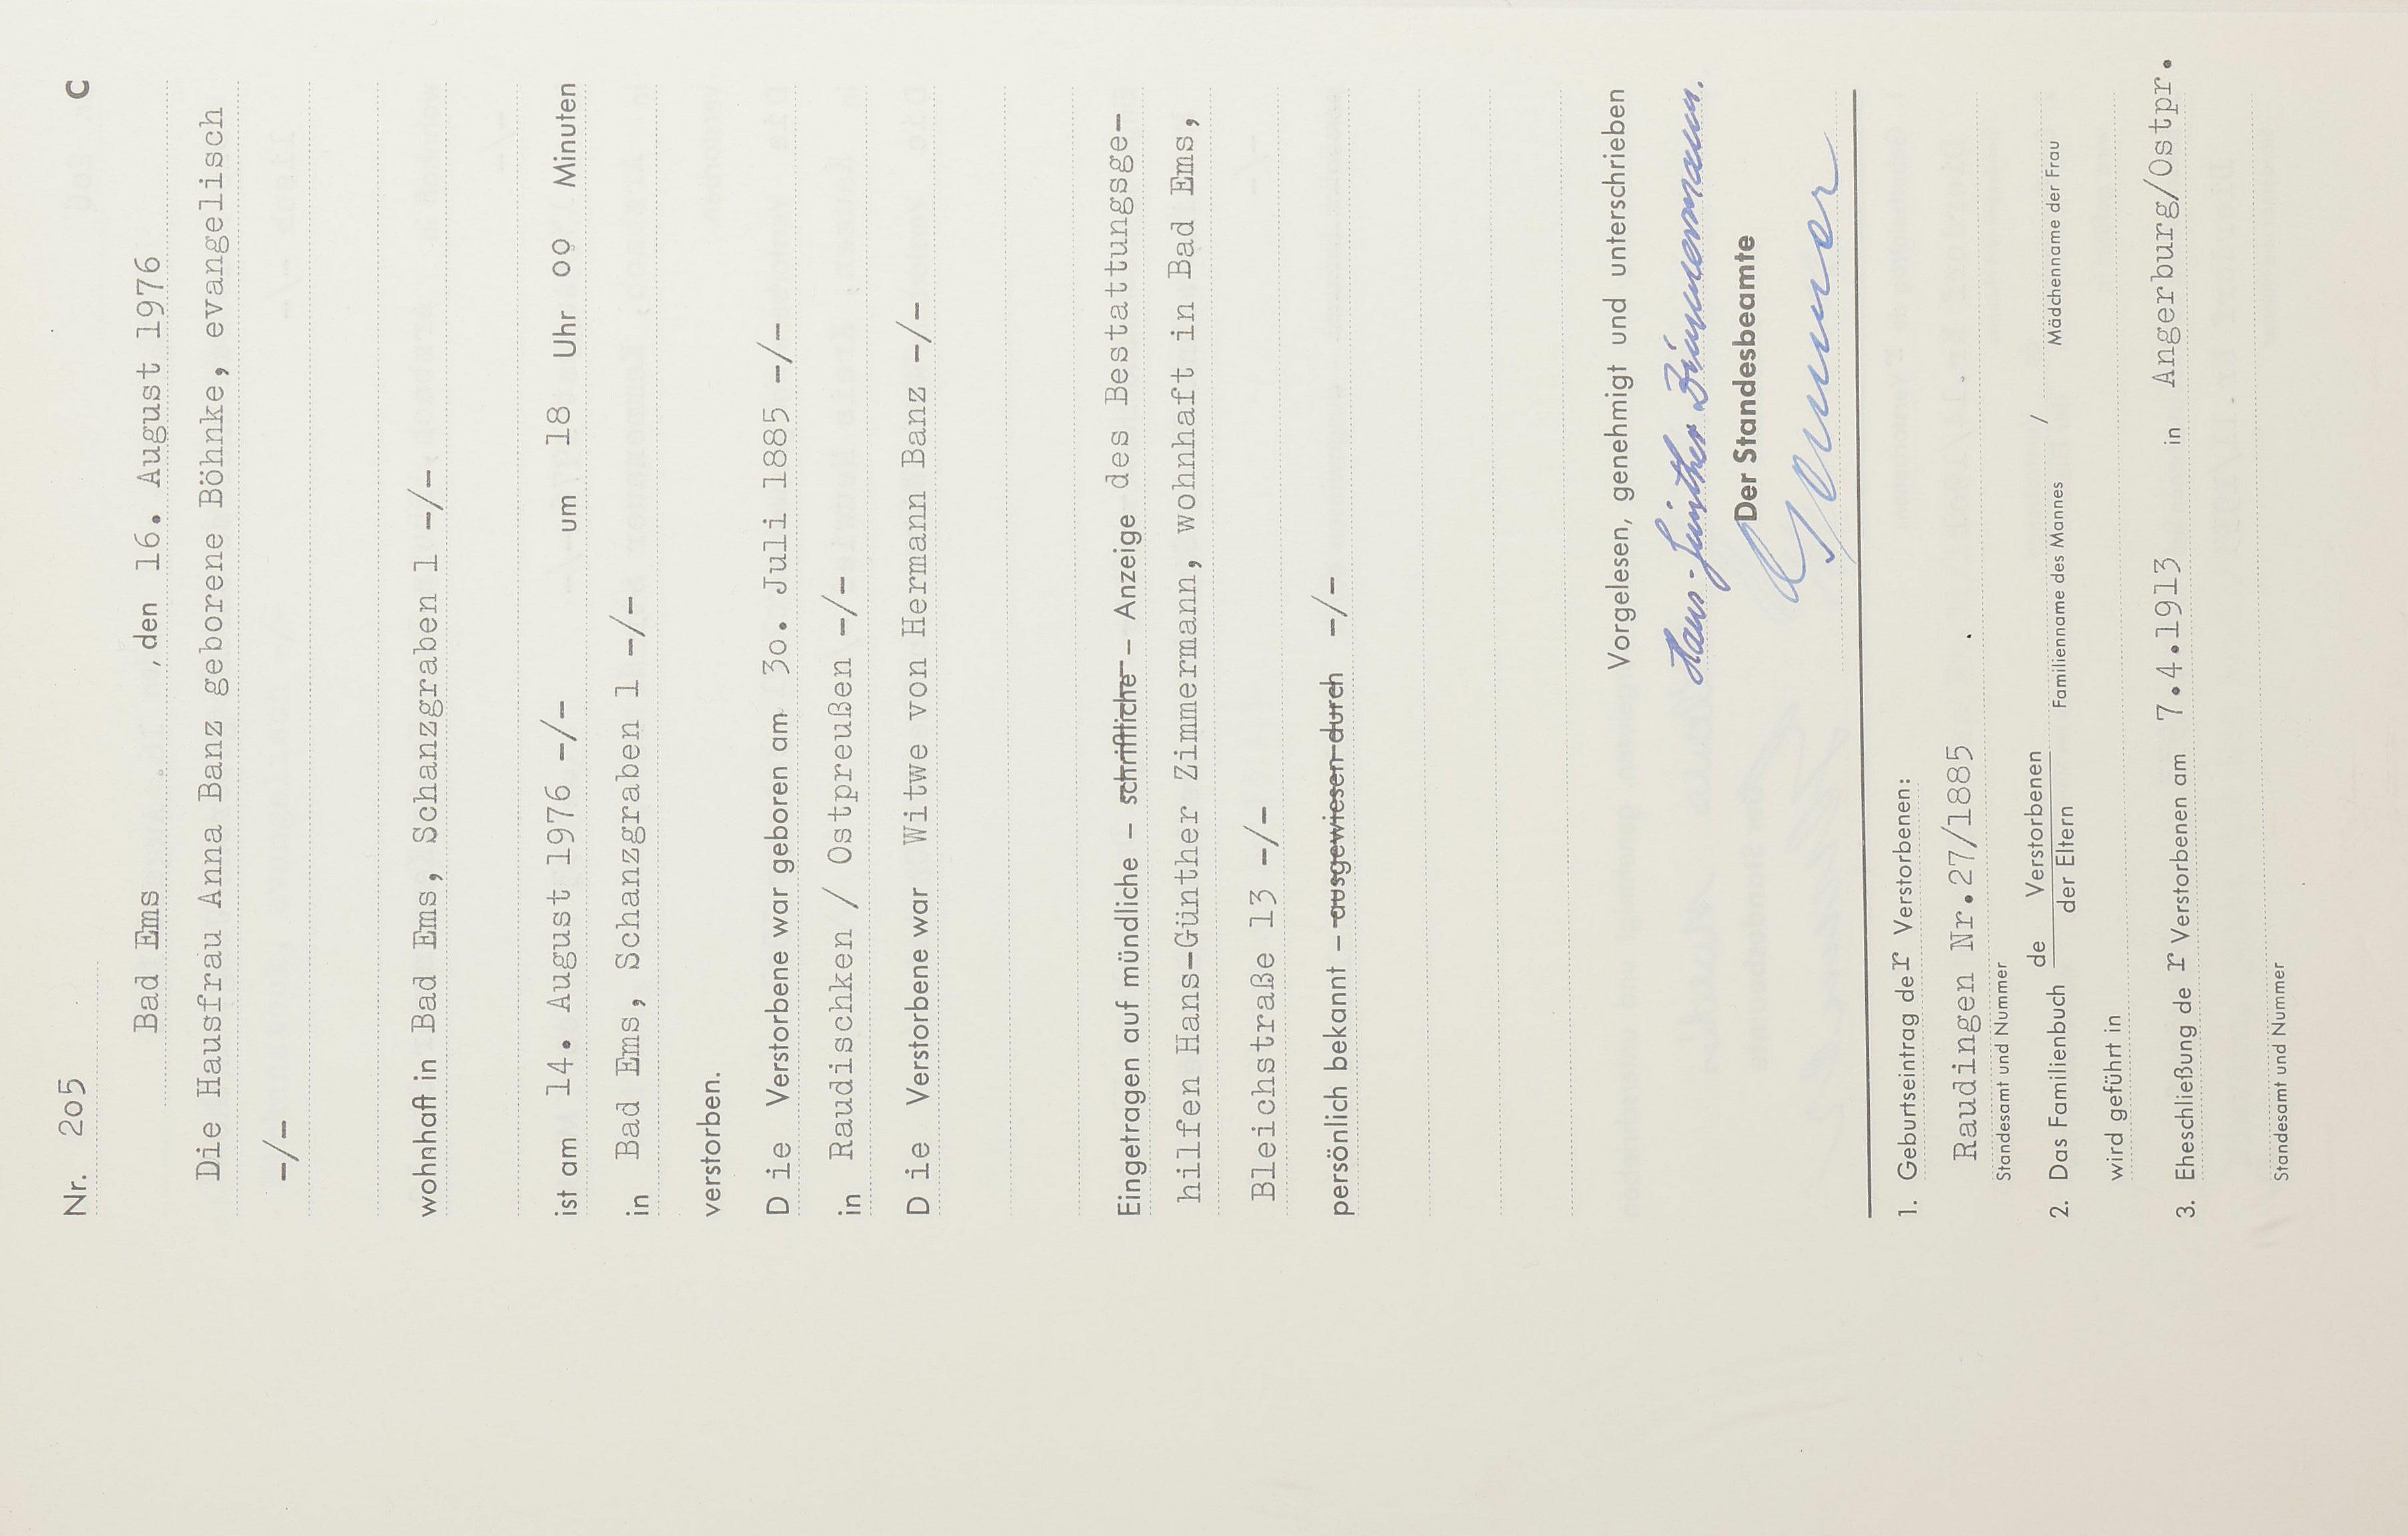 Nr. 2o5 C
Bad Ems, den 16. August 1976
Die Hausfrau Anna Banz geborene Böhnke, evangelisch
-/-
wohnhaft in Bad Ems, Schanzgraben 1 -/-
ist am 14. August 1976 -/- um 18 Uhr o9 Minuten
in Bad Ems, Schanzgraben 1 -/-
verstorben.
D ie Verstorbene war geboren am 3o. Juli 1885 -/-
in Raudischken / Ostpreußen -/-
D ie Verstorbene war Witwe von Hermann Banz -/-
Eingetragen auf mündliche - schriftliche - Anzeige des Bestattungsge-
hilfen Hans-Günther Zimmermann, wohnhaft in Bad Ems,
Bleichstraße 13 -/-
persönlich bekannt - ausgewiesen durch -/-
Vorgelesen, genehmigt und unterschrieben
Hans-Günther Zimmermann.
Der Standesbeamte
1. Geburtseintrag der Verstorbenen:
Raudingen Nr.27/1885
Standesamt und Nummer
2. Das Familienbuch de Verstorbenen / der Eltern Familienname des Mannes / Mädchenname der Frau
wird geführt in
3. Eheschließung de r Verstorbenen am 7.4.1913 in Angerburg/Ostpr.
Standesamt und Nummer